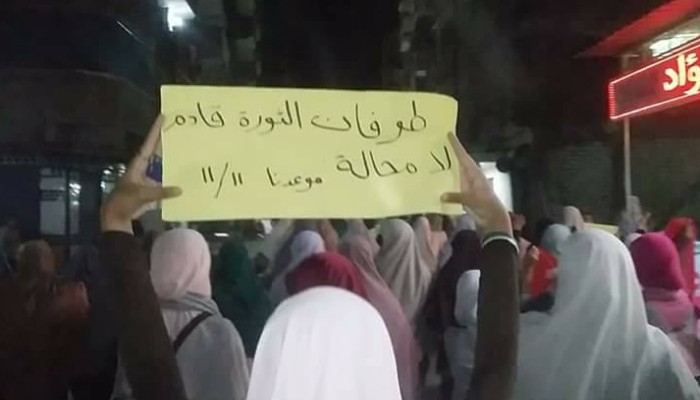 طوفان الثورة قادم
لا محالة موعدنا ١١/١١
ؤاد